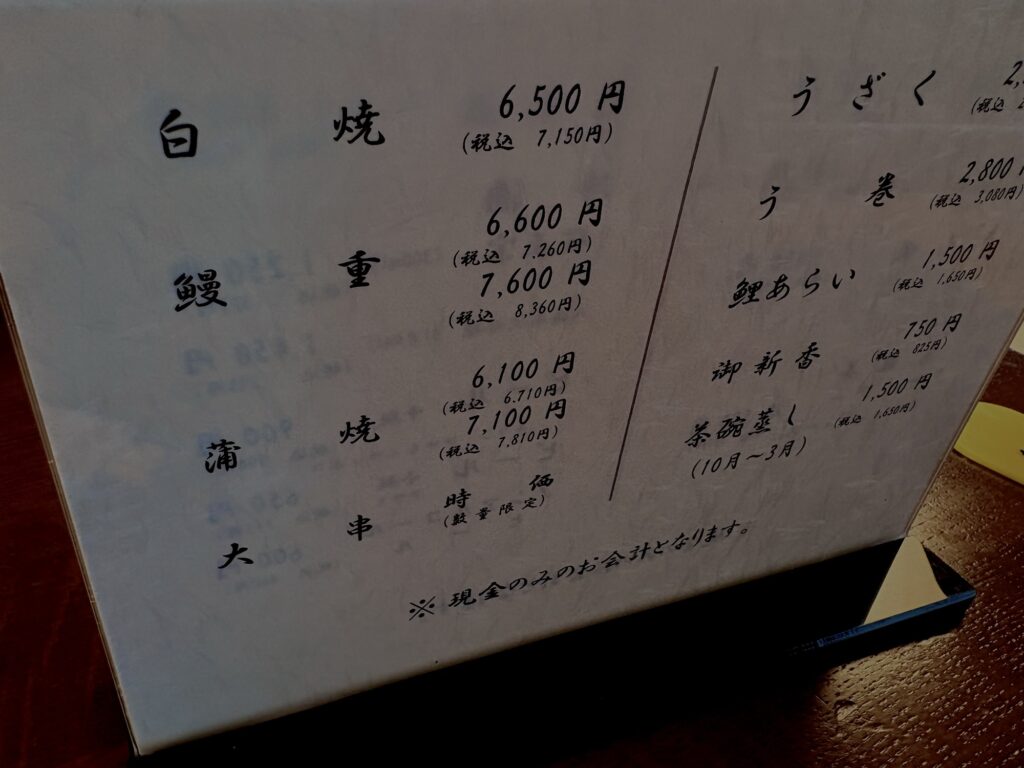 白焼 6,500 円
(税込 7,150円)
鰻重 6,600 円
(税込 7,260円)
7,600 円
(税込 8,360円)
蒲焼 6,100 円
(税込 6,710円)
7,100 円
(税込 7,810円)
大串 時価
(数量限定)
うざく
(税込
う巻 2,800
(税込 3,080円)
鯉あらい 1,500 円
(税込 1,650円)
御新香 750 円
(税込 825円)
茶碗蒸し 1,500 円
(税込 1,650円)
(10月〜3月)
※ 現金のみのお会計となります。